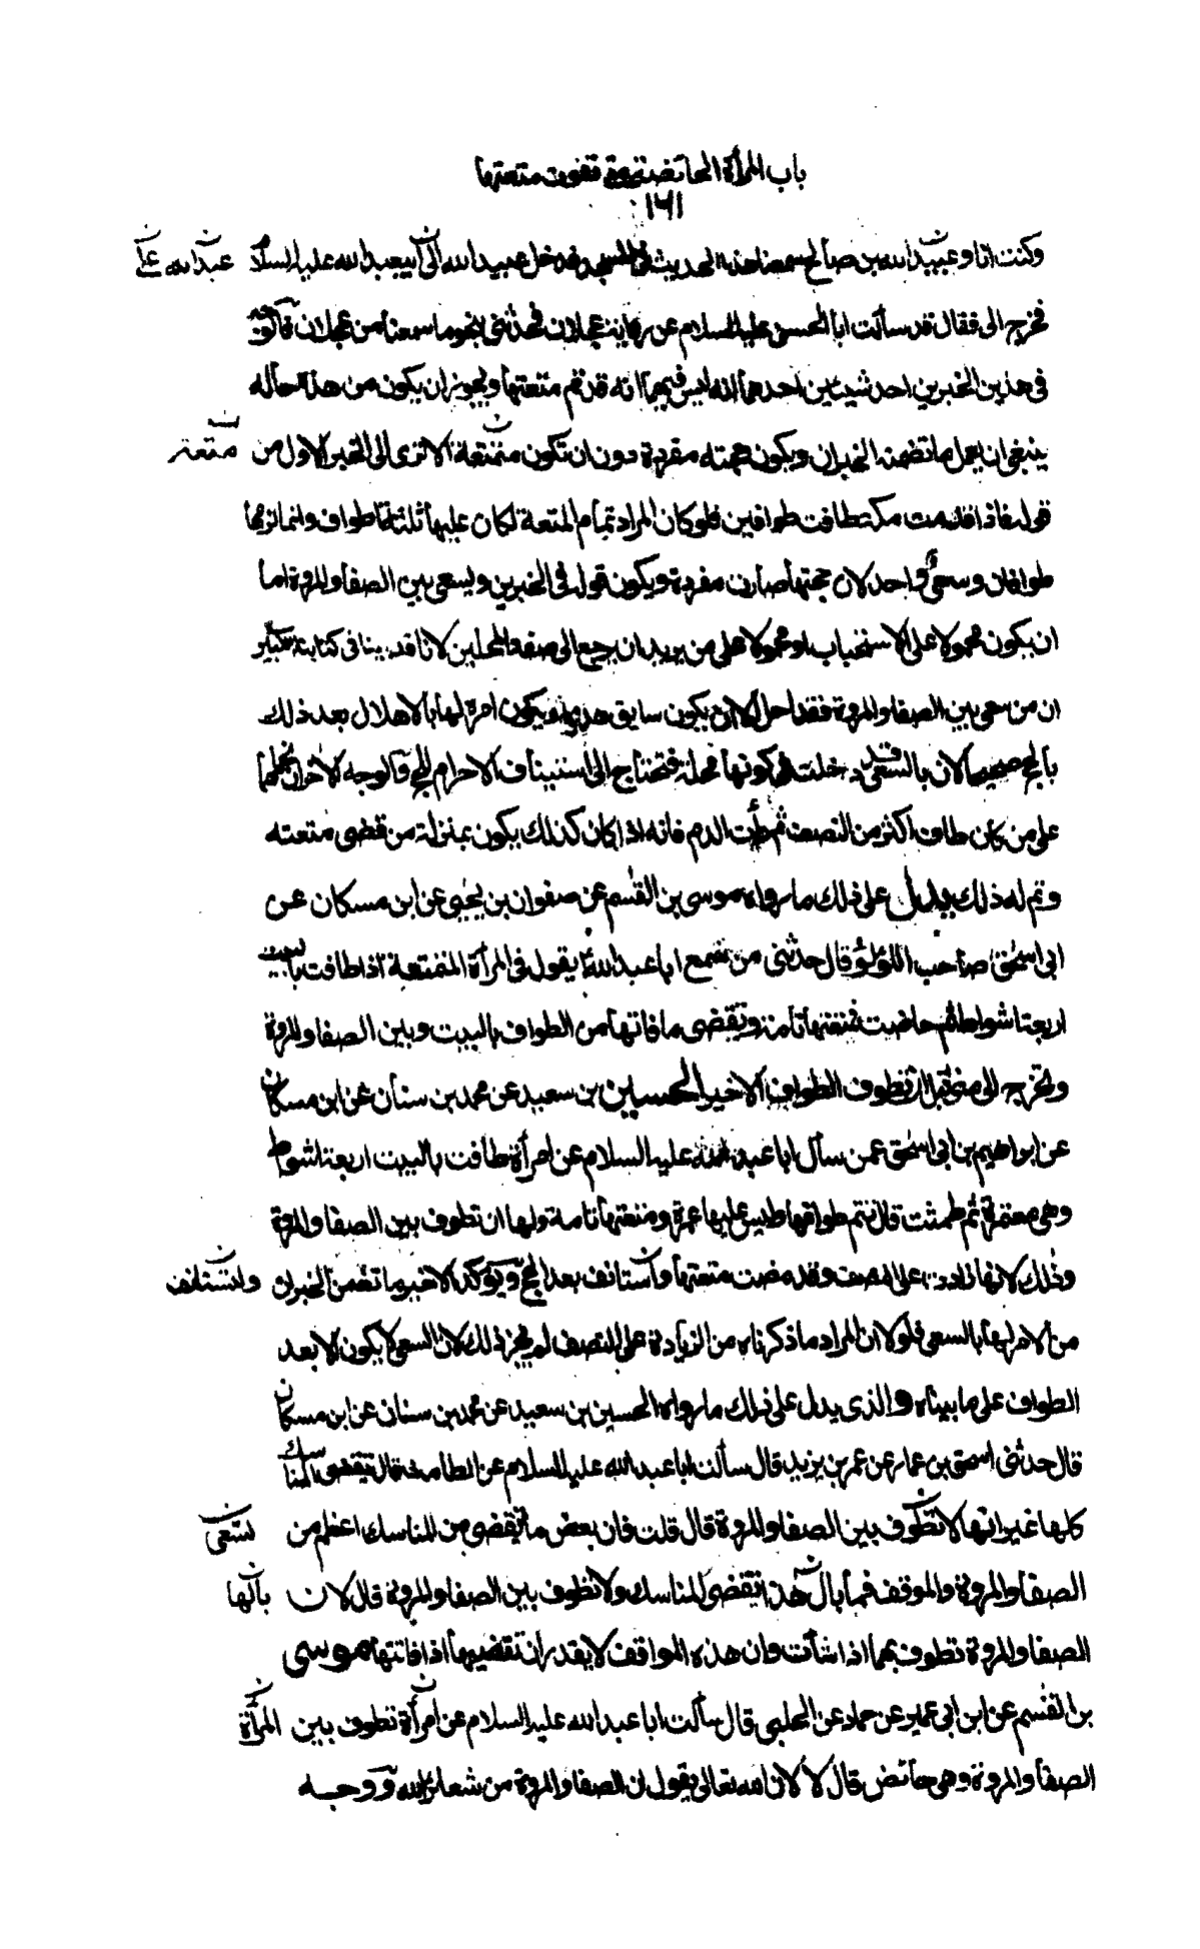 باب المرأة الحائض متى تفوت متعتها
١٦١
وكنت انا وعبيد الله بن صالح سمعنا هذا الحديث في المسجد فدخل عبيد الله الى ابي عبد الله عليه السلام عبد الله على
فخرج الى فقال قد سألت ابا الحسن عليه السلام عن رواية عجلان فحدثني بنحو ما سمعنا من عجلان
في هذين الخبرين احد شيئين احدهما انه ليس فيهما انه قد تم متعتها ويجوز ان يكون من هذا حاله
ينبغي ان يعمل ما تضمنه الخبران ويكون حجته مفردة دون ان تكون متمتعة الا ترى الى الخبر الاول من متعة
قوله فاذا قدمت مكة طافت طوافين فلو كان المراد تمام المتعة لكان عليها ثلثة اطواف وانما لزمها
طوافان وسعي واحد لان حجتها صارت مفردة ويكون قوله في الخبرين ويسعى بين الصفا والمروة اما
ان يكون محمولا على الاستحباب او محمولا على من يريد ان يرجع الى صفة المحلين لانا قد بينا في كتابنا الكبير
ان من سعى بين الصفا والمروة فقد احل الا ان يكون سايق هدي ويكون امره لها بالاهلال بعد ذلك
بالحج صحيحا لان بالسعي قد دخلت في كونها محلة فتحتاج الى استيناف الاحرام للحج والوجه الاخر ان نحملهما
على من كان طاف اكثر من النصف ثم رأت الدم فانه اذا كان كذلك يكون بمنزلة من قضى متعته
وتم له ذلك يدل على ذلك ما رواه موسى بن القسم عن صفوان بن يحيى عن ابن مسكان عن
ابي اسحق صاحب اللؤلؤ قال حدثني من سمع ابا عبد الله يقول في المرأة المتمتعة اذا طافت بالبيت
اربعة اشواط ثم حاضت فمتعتها تامة وتقضي ما فاتها من الطواف بالبيت وبين الصفا والمروة
وتخرج الى منى قبل ان تطوف الطواف الاخير الحسين بن سعيد عن محمد بن سنان عن ابن مسكان
عن ابراهيم بن ابي اسحق عمن سأل ابا عبد الله عليه السلام عن امرأة طافت بالبيت اربعة اشواط
وهي معتمرة ثم طمثت قال تتم طوافها فليس عليها عمرة ومتعتها تامة ولها ان تطوف بين الصفا والمروة
وذلك لانها زادت على النصف وقد مضت متعتها وتستانف بعد الحج ويؤكد الاخير ما تضمن الخبران ولتستانف
من الامر لها بالسعي فلولا ان المراد ما ذكرناه من الزيادة على النصف لم يجز ذلك لان السعي لا يكون الا بعد
الطواف على ما بيناه والذي يدل على ذلك ما رواه الحسين بن سعيد عن محمد بن سنان عن ابن مسكان
قال حدثني اسحق بن عمار عن عمر بن يزيد قال سألت ابا عبد الله عليه السلام عن الطامث قال تقضي المناسك
كلها غير انها لا تطوف بين الصفا والمروة قال قلت فان بعض ما تقضي من المناسك اعظم من تسعى
الصفا والمروة والموقف فما بال هذا تقضى المناسك ولا تطوف بين الصفا والمروة قال لان بالها
الصفا والمروة تطوف بهما اذا شائت وان هذه المواقف لا يقدر ان تقضيها اذا فاتتها موسى
بن القسم عن ابن ابي عمير عن حماد عن الحلبي قال سألت ابا عبد الله عليه السلام عن امرأة تطوف بين المرأة
الصفا والمروة وهي حائض قال لا لان الله تعالى يقول ان الصفا والمروة من شعائر الله ووجه